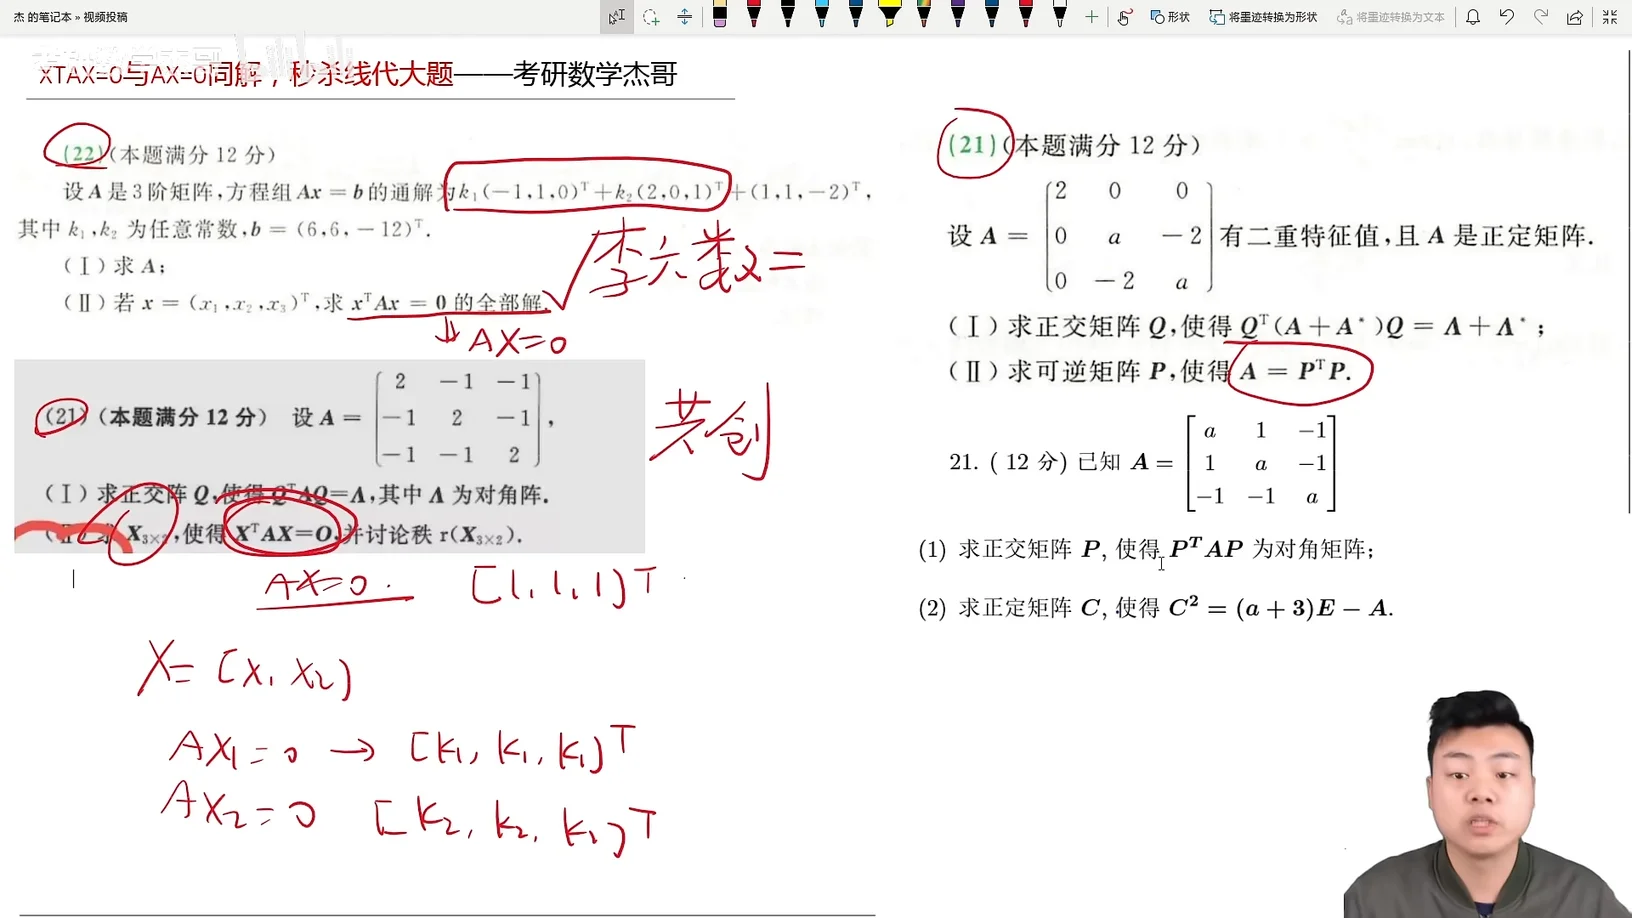 杰 的笔记本 » 视频投稿
形状
将墨迹转换为形状
将墨迹转换为文本
XTAX=0与AX=0同解，秒杀线代大题——考研数学杰哥
(22)(本题满分 12 分)
设 A 是 3 阶矩阵,方程组 Ax = b 的通解为 k₁(−1,1,0)ᵀ+k₂(2,0,1)ᵀ+(1,1,−2)ᵀ,
其中 k₁,k₂ 为任意常数,b = (6,6,−12)ᵀ.
(Ⅰ)求 A;
(Ⅱ)若 x = (x₁,x₂,x₃)ᵀ,求 xᵀAx = 0 的全部解.
李六 数二
AX=0
(21)(本题满分 12 分) 设 A =
2 −1 −1
−1 2 −1 ,
−1 −1 2
(Ⅰ)求正交阵 Q,使得 QᵀAQ=Λ,其中 Λ 为对角阵.
X₃ₓ₂,使得 XᵀAX=O,并讨论秩 r(X₃ₓ₂).
共创
AX=0. [1,1,1]ᵀ
X=[X₁ X₂]
AX₁=0 → [k₁,k₁,k₁]ᵀ
AX₂=0 [k₂,k₂,k₂]ᵀ
(21)(本题满分 12 分)
2 0 0
设 A = 0 a −2 有二重特征值,且 A 是正定矩阵.
0 −2 a
(Ⅰ)求正交矩阵 Q,使得 Qᵀ(A+A*)Q = Λ+Λ*;
(Ⅱ)求可逆矩阵 P,使得 A = PᵀP.
a 1 −1
21. ( 12 分) 已知 A = 1 a −1
−1 −1 a
(1) 求正交矩阵 P, 使得 PᵀAP 为对角矩阵;
(2) 求正定矩阵 C, 使得 C² = (a + 3)E − A.